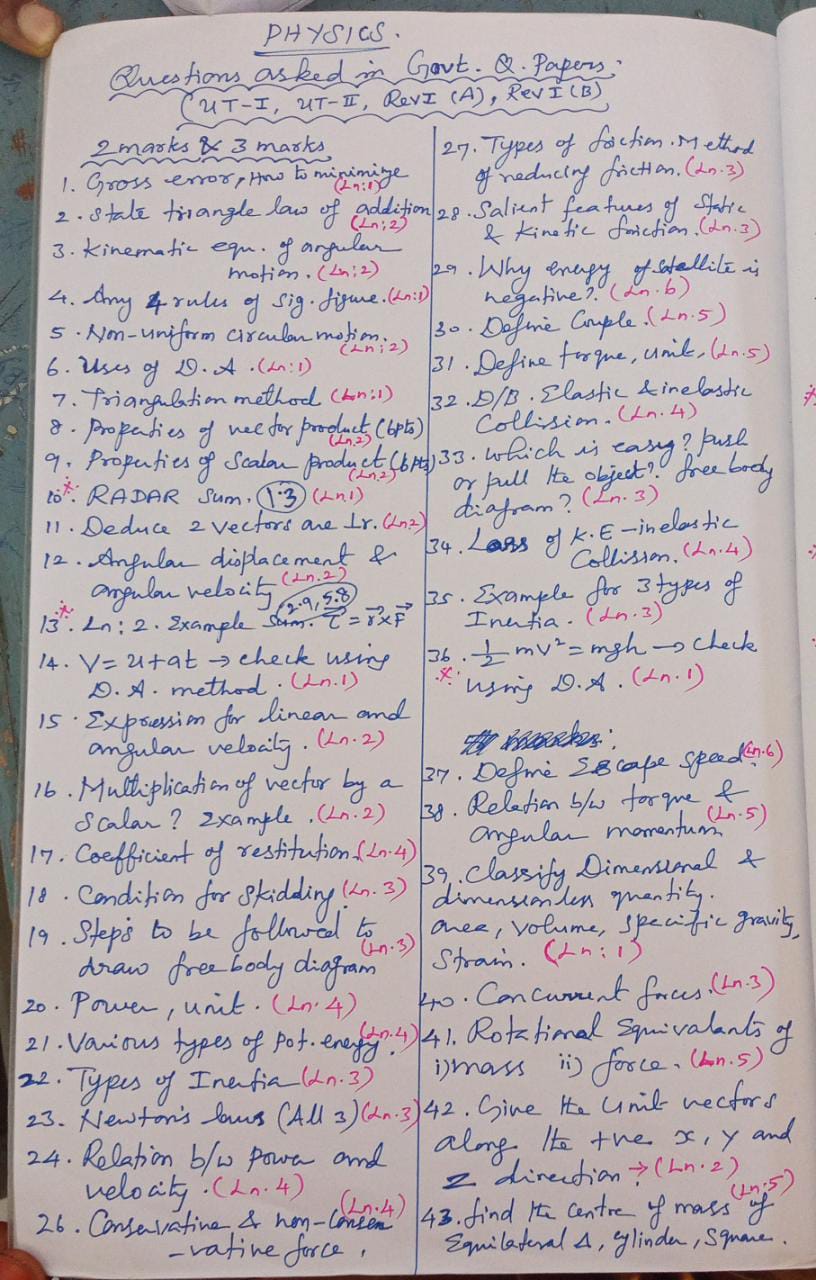 PHYSICS.
Questions asked in Govt. Q. Papers.
(UT-I, UT-II, Rev I (A), Rev I (B)
2 marks & 3 marks
1. Gross error, How to minimize
(Ln:1)
2. State triangle law of addition
(Ln:2)
3. Kinematic equ. of angular
motion. (Ln:2)
4. Any 4 rules of sig. figure. (Ln:1)
5. Non-uniform circular motion.
(Ln:2)
6. Uses of D.A. (Ln:1)
7. Triangulation method (Ln:1)
8. Properties of vector product (6pts)
(Ln.2)
9. Properties of Scalar product (6pts)
(Ln.2)
10. RADAR sum. 1.3 (Ln1)
11. Deduce 2 vectors are ⊥r. (Ln2)
12. Angular displacement &
angular velocity (Ln.2)
2.9, 5.8
13. Ln: 2. Example Sum. τ = r x F
14. V = u + at → check using
D.A. method. (Ln.1)
15. Expression for linear and
angular velocity. (Ln.2)
16. Multiplication of vector by a
Scalar? Example. (Ln.2)
17. Coefficient of restitution (Ln.4)
18. Condition for Skidding. (Ln.3)
19. Steps to be followed to
draw free body diagram (Ln.3)
20. Power, unit. (Ln.4)
21. Various types of Pot. energy. (Ln.4)
22. Types of Inertia (Ln.3)
23. Newton's laws (All 3) (Ln.3)
24. Relation b/w Power and
velocity. (Ln.4)
(Ln.4)
26. Conservative & non-Conser
-vative force.
27. Types of friction. Method
of reducing friction. (Ln.3)
28. Salient features of Static
& Kinetic friction. (Ln.3)
29. Why energy of satellite is
negative? (Ln.6)
30. Define Couple. (Ln.5)
31. Define torque, unit, (Ln.5)
32. D/B. Elastic & inelastic
Collision. (Ln.4)
33. Which is easy? push
or pull the object? free body
diagram? (Ln.3)
34. Loss of K.E - inelastic
Collision. (Ln.4)
35. Example for 3 types of
Inertia. (Ln.3)
36. ½ mv² = mgh → check
using D.A. (Ln.1)
37. Define Escape speed. (Ln.6)
38. Relation b/w torque &
angular momentum (Ln.5)
39. Classify Dimensional &
dimensionless quantity.
area, volume, specific gravity,
Strain. (Ln:1)
40. Concurrent forces. (Ln.3)
41. Rotational Equivalants of
i) mass ii) force. (Ln.5)
42. Give the Unit vectors
along the +ve x, y and
z direction? → (Ln.2)
(Ln:5)
43. find the centre of mass of
Equilateral Δ, cylinder, Square.